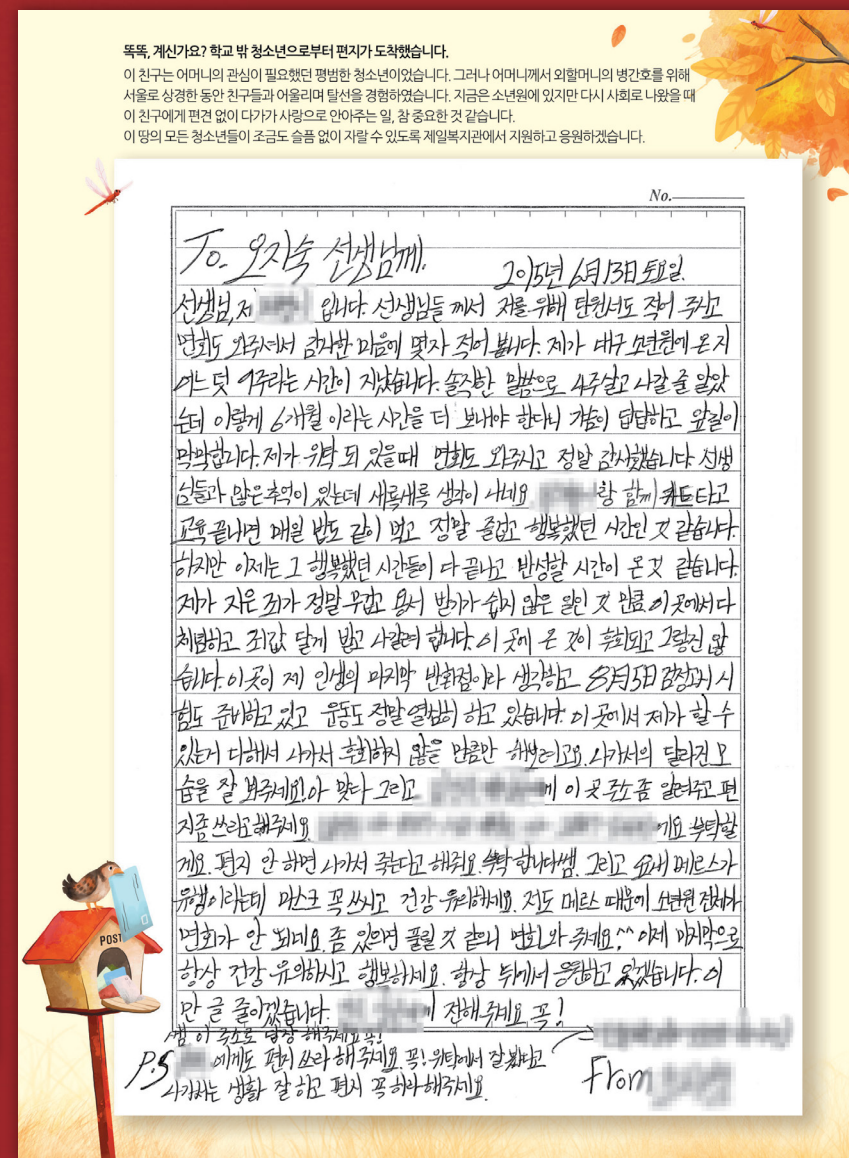 똑똑, 계신가요? 학교 밖 청소년으로부터 편지가 도착했습니다.
이 친구는 어머니의 관심이 필요했던 평범한 청소년이었습니다. 그러나 어머니께서 외할머니의 병간호를 위해
서울로 상경한 동안 친구들과 어울리며 탈선을 경험하였습니다. 지금은 소년원에 있지만 다시 사회로 나왔을 때
이 친구에게 편견 없이 다가가 사랑으로 안아주는 일, 참 중요한 것 같습니다.
이 땅의 모든 청소년들이 조금도 슬픔 없이 자랄 수 있도록 제일복지관에서 지원하고 응원하겠습니다.
No.
To. 오지숙 선생님께.
2015년 6月 13日 토요일.
선생님, 제 입니다. 선생님들 께서 저를 위해 탄원서도 적어 주시고
면회도 와주셔서 감사한 마음에 몇자 적어 봅니다. 제가 대구 소년원에 온 지
어느 덧 9주라는 시간이 지났습니다. 솔직한 말씀으로 4주살고 나갈 줄 알았
는데 이렇게 6개월 이라는 시간을 더 보내야 한다니 가슴이 답답하고 앞길이
막막합니다. 제가 위탁 되 있을때 면회도 와주시고 정말 감사했습니다. 선생
님들과 많은 추억이 있는데 새록새록 생각이 나네요. 랑 함께 카트타고
교육 끝나면 매일 밥도 같이 먹고 정말 즐겁고 행복했던 시간인 것 같습니다.
하지만 이제는 그 행복했던 시간들이 다 끝나고 반성할 시간이 온 것 같습니다.
제가 지은 죄가 정말 무겁고 용서 받기가 쉽지 않은 일인 것 만큼 이 곳에서 다
체념하고 죄값 달게 받고 나갈려 합니다. 이 곳에 온 것이 후회되고 그렇진 않
습니다. 이 곳이 제 인생의 마지막 반환점이라 생각하고 8月5日 검정고시 시
험도 준비하고 있고 운동도 정말 열심히 하고 있습니다. 이 곳에서 제가 할 수
있는거 다해서 나가서 후회하지 않을 만큼만 해보려고요. 나가서의 달라진 모
습을 잘 봐주세요! 아 맞다 그리고 에게 이 곳 주소 좀 알려주고 편
지좀 쓰라고 해주세요. 에요. 부탁할
게요. 편지 안 하면 나가서 죽는다고 해줘요. 부탁 합니다쌤. 그리고 요새 메르스가
유행이라는데 마스크 꼭 쓰시고 건강 유의하세요. 저도 메르스 때문에 소년원 전체가
면회가 안 되네요. 좀 있으면 풀릴 것 같으니 면회 와 주세요.^^ 이제 마지막으로
항상 건강 유의하시고 행복하세요. 항상 뒤에서 응원하고 있겠습니다. 이
만 글 줄이겠습니다. 전해주세요. 꼭!
쌤 이 주소로 답장 해주세요 꼭!
P.S 에게도 편지 쓰라 해주세요. 꼭! 위탁에서 잘 봤다고
나가서는 생활 잘 하고 편지 꼭 하라 해주세요.
From
POST